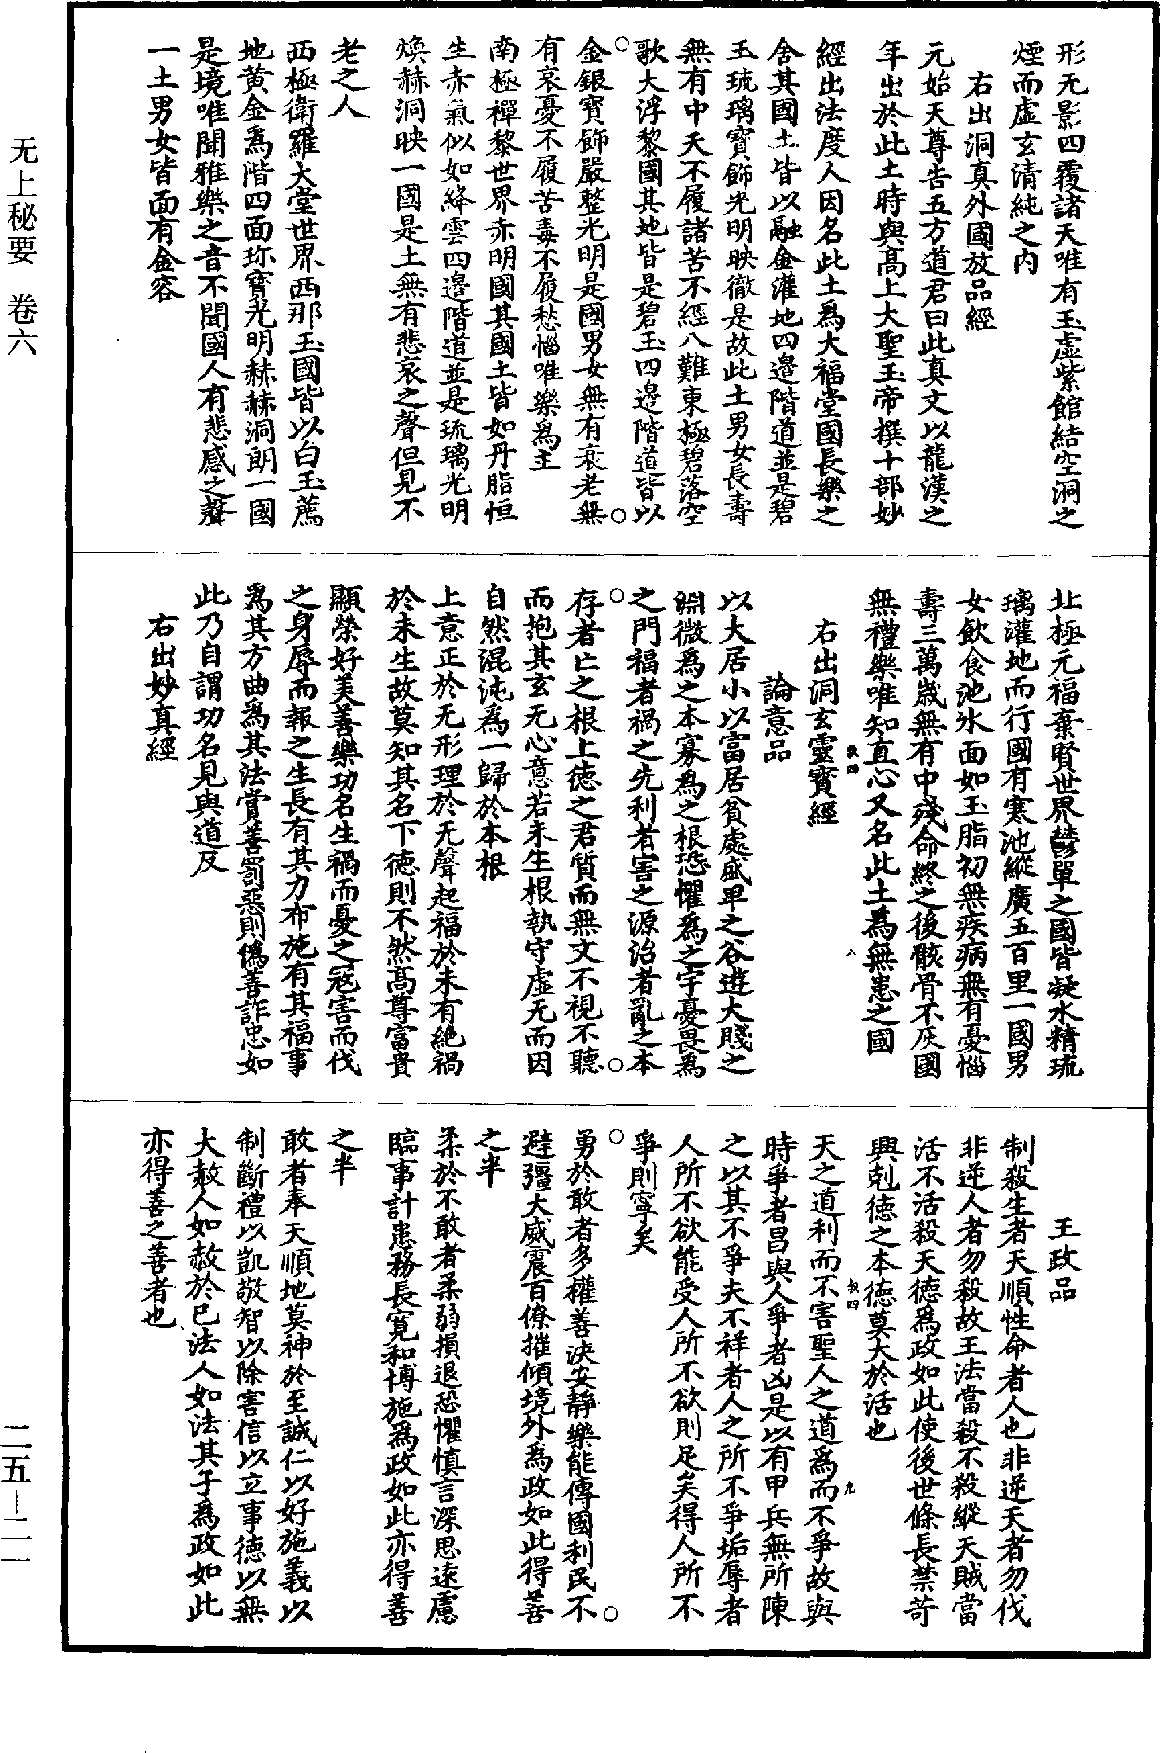 形无影四覆諸天唯有玉虛紫館結空洞之
煙而虛玄清純之内
右出洞真外國放品經
元始天尊告五方道君曰此真文以龍漢之
年出於此土時與高上大聖玉帝撰十部妙
經出法度人因名此土為大福堂國長樂之
舍其國土皆以融金灌地四邊階道並是碧
玉琉璃寶飾光明映徹是故此土男女長壽
無有中夭不履諸苦不經八難東極碧落空
歌大浮黎國其地皆是碧玉四邊階道皆以
金銀寶飾嚴整光明是國男女無有衰老無
有哀憂不履苦毒不履愁惱唯樂為主
南極禪黎世界赤明國其國土皆如丹脂恒
生赤氣似如絳雲四邊階道並是琉璃光明
煥赫洞映一國是土無有悲哀之聲但見不
老之人
西極衛羅大堂世界西那玉國皆以白玉薦
地黃金為階四面珎寶光明赫赫洞朗一國
是境唯聞雅樂之音不聞國人有悲感之聲
一土男女皆面有金容
北極元福棄賢世界鬱單之國皆凝水精琉
璃灌地而行國有寒池縱廣五百里一國男
女飲食池水面如玉脂初無疾病無有憂惱
壽三萬歲無有中殘命終之後骸骨不灰國
無禮樂唯知直心又名此土為無患之國
右出洞玄靈寶經
論意品
以大居小以富居貧處盛卑之谷遊大賤之
淵微為之本寡為之根恐懼為之宇憂畏為
之門福者禍之先利者害之源治者亂之本
存者亡之根上德之君質而無文不視不聽
而抱其玄无心意若未生根執守虛无而因
自然混沌為一歸於本根
上意正於无形理於无聲起福於未有絶禍
於未生故莫知其名下德則不然高尊富貴
顯榮好美善樂功名生禍而憂之寇害而伐
之身辱而報之生長有其力布施有其福事
為其方曲為其法賞善罰惡則偽善詐忠如
此乃自謂功名見與道反
右出妙真經
王政品
制殺生者天順性命者人也非逆天者勿伐
非逆人者勿殺故王法當殺不殺縱天賊當
活不活殺天德為政如此使後世條長禁苛
興剋德之本德莫大於活也
天之道利而不害聖人之道為而不爭故與
時爭者昌與人爭者凶是以有甲兵無所陳
之以其不爭夫不祥者人之所不爭垢辱者
人所不欲能受人所不欲則足矣得人所不
爭則寧矣
勇於敢者多權善決安靜樂能傳國利民不
避彊大威震百僚摧傾境外為政如此得善
之半
柔於不敢者柔弱損退恐懼慎言深思遠慮
臨事計患務長寬和博施為政如此亦得善
之半
敢者奉天順地莫神於至誠仁以好施義以
制斷禮以凱敬智以除害信以立事德以無
大赦人如赦於已法人如法其子為政如此
亦得善之善者也
无上秘要 卷六
二五-二一